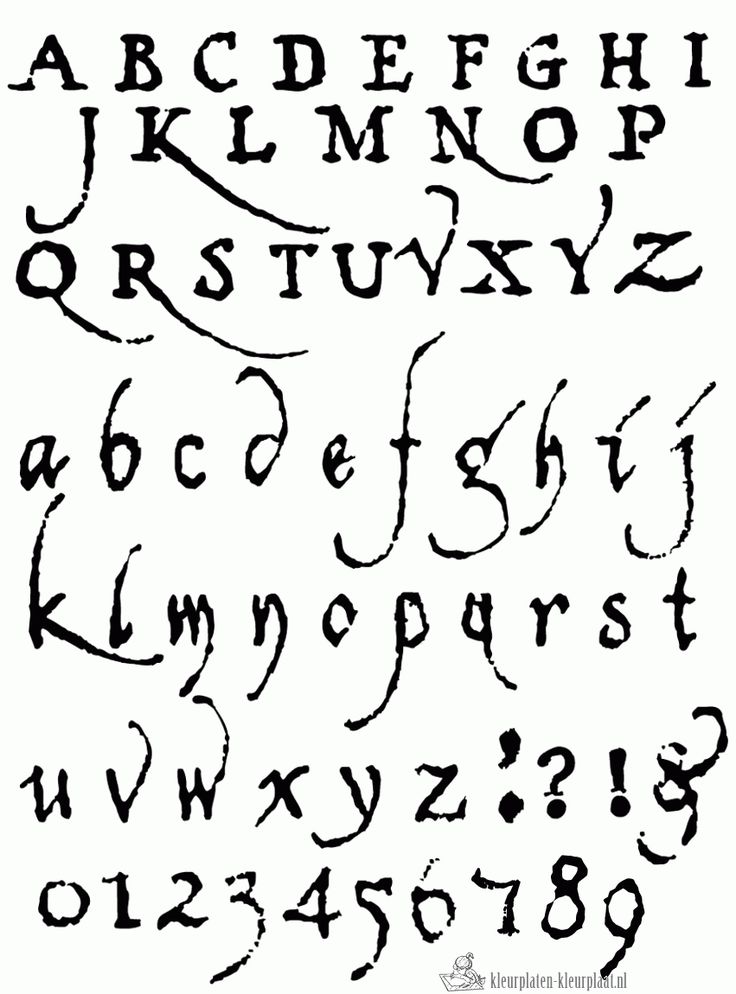 A B C D E F G H I
J K L M N O P
Q R S T U V X Y Z
a b c d e f g h i j
k l m n o p q r s t
u v w x y z ? ! &
0 1 2 3 4 5 6 7 8 9
kleurplaten-kleurplaat.nl